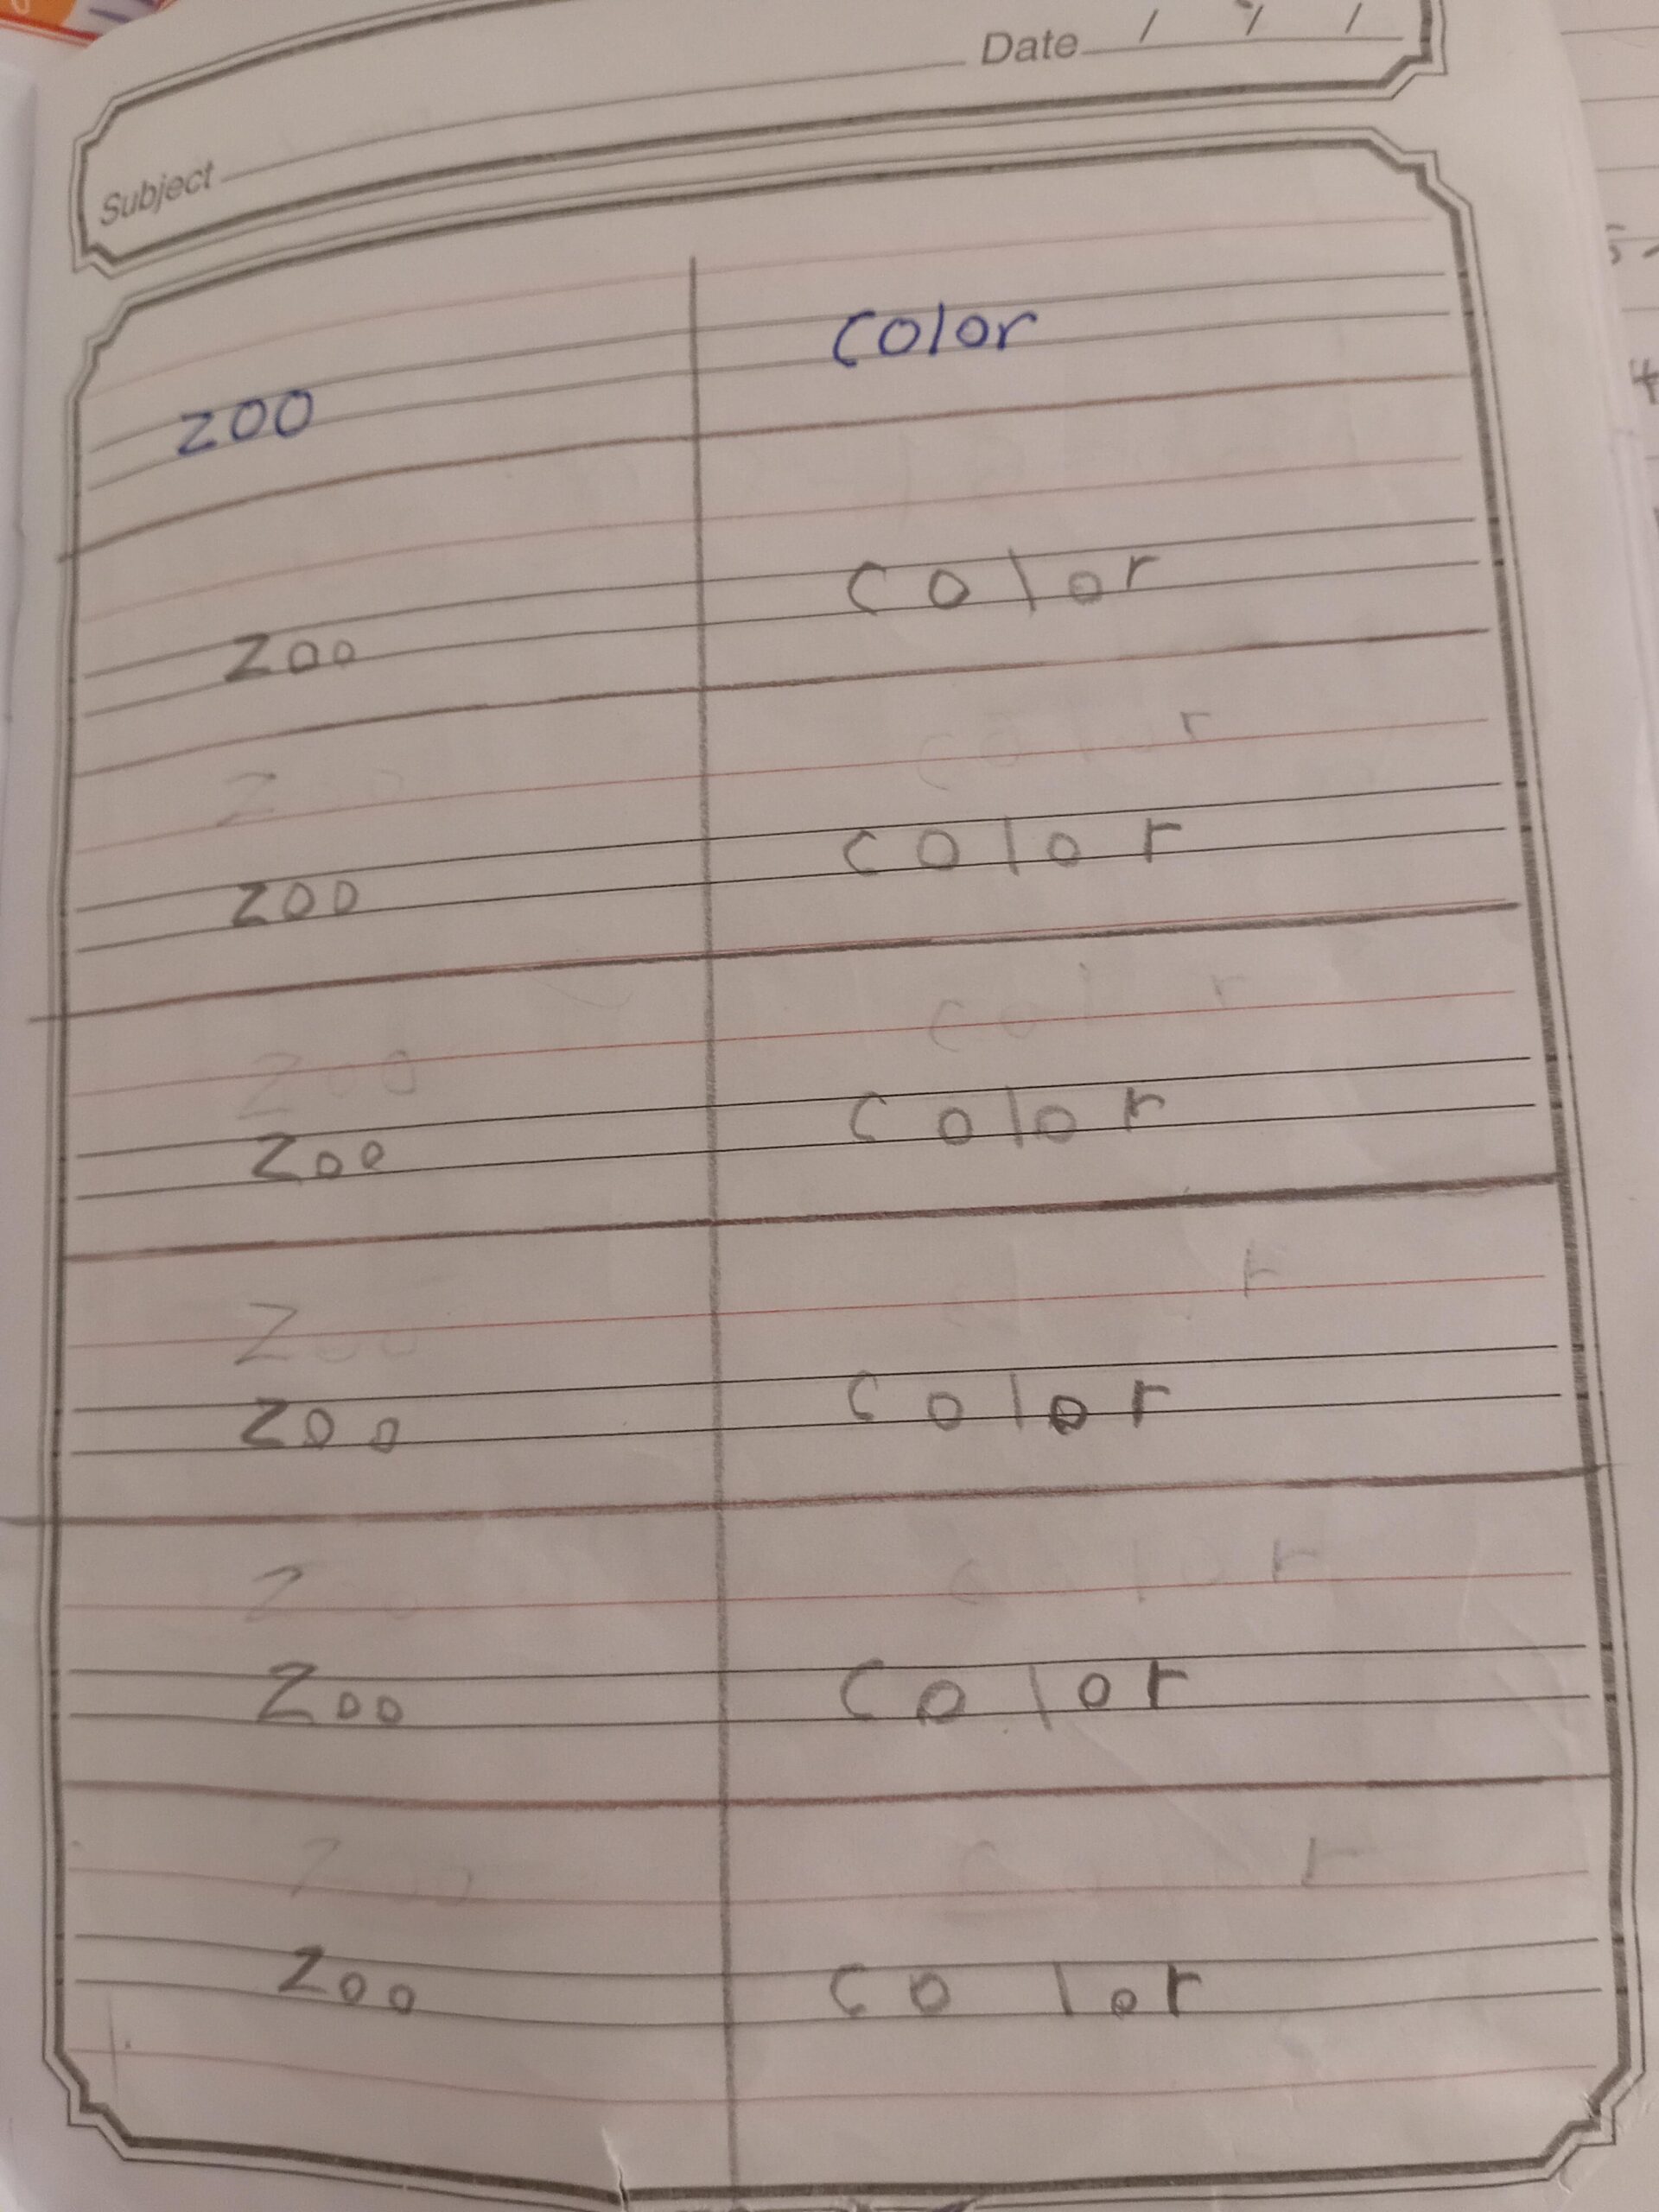 Date / / /
Subject
zoo color
zoo color
color
zoo color
color
zoo color
zoo color
color
zoo color
zoo color